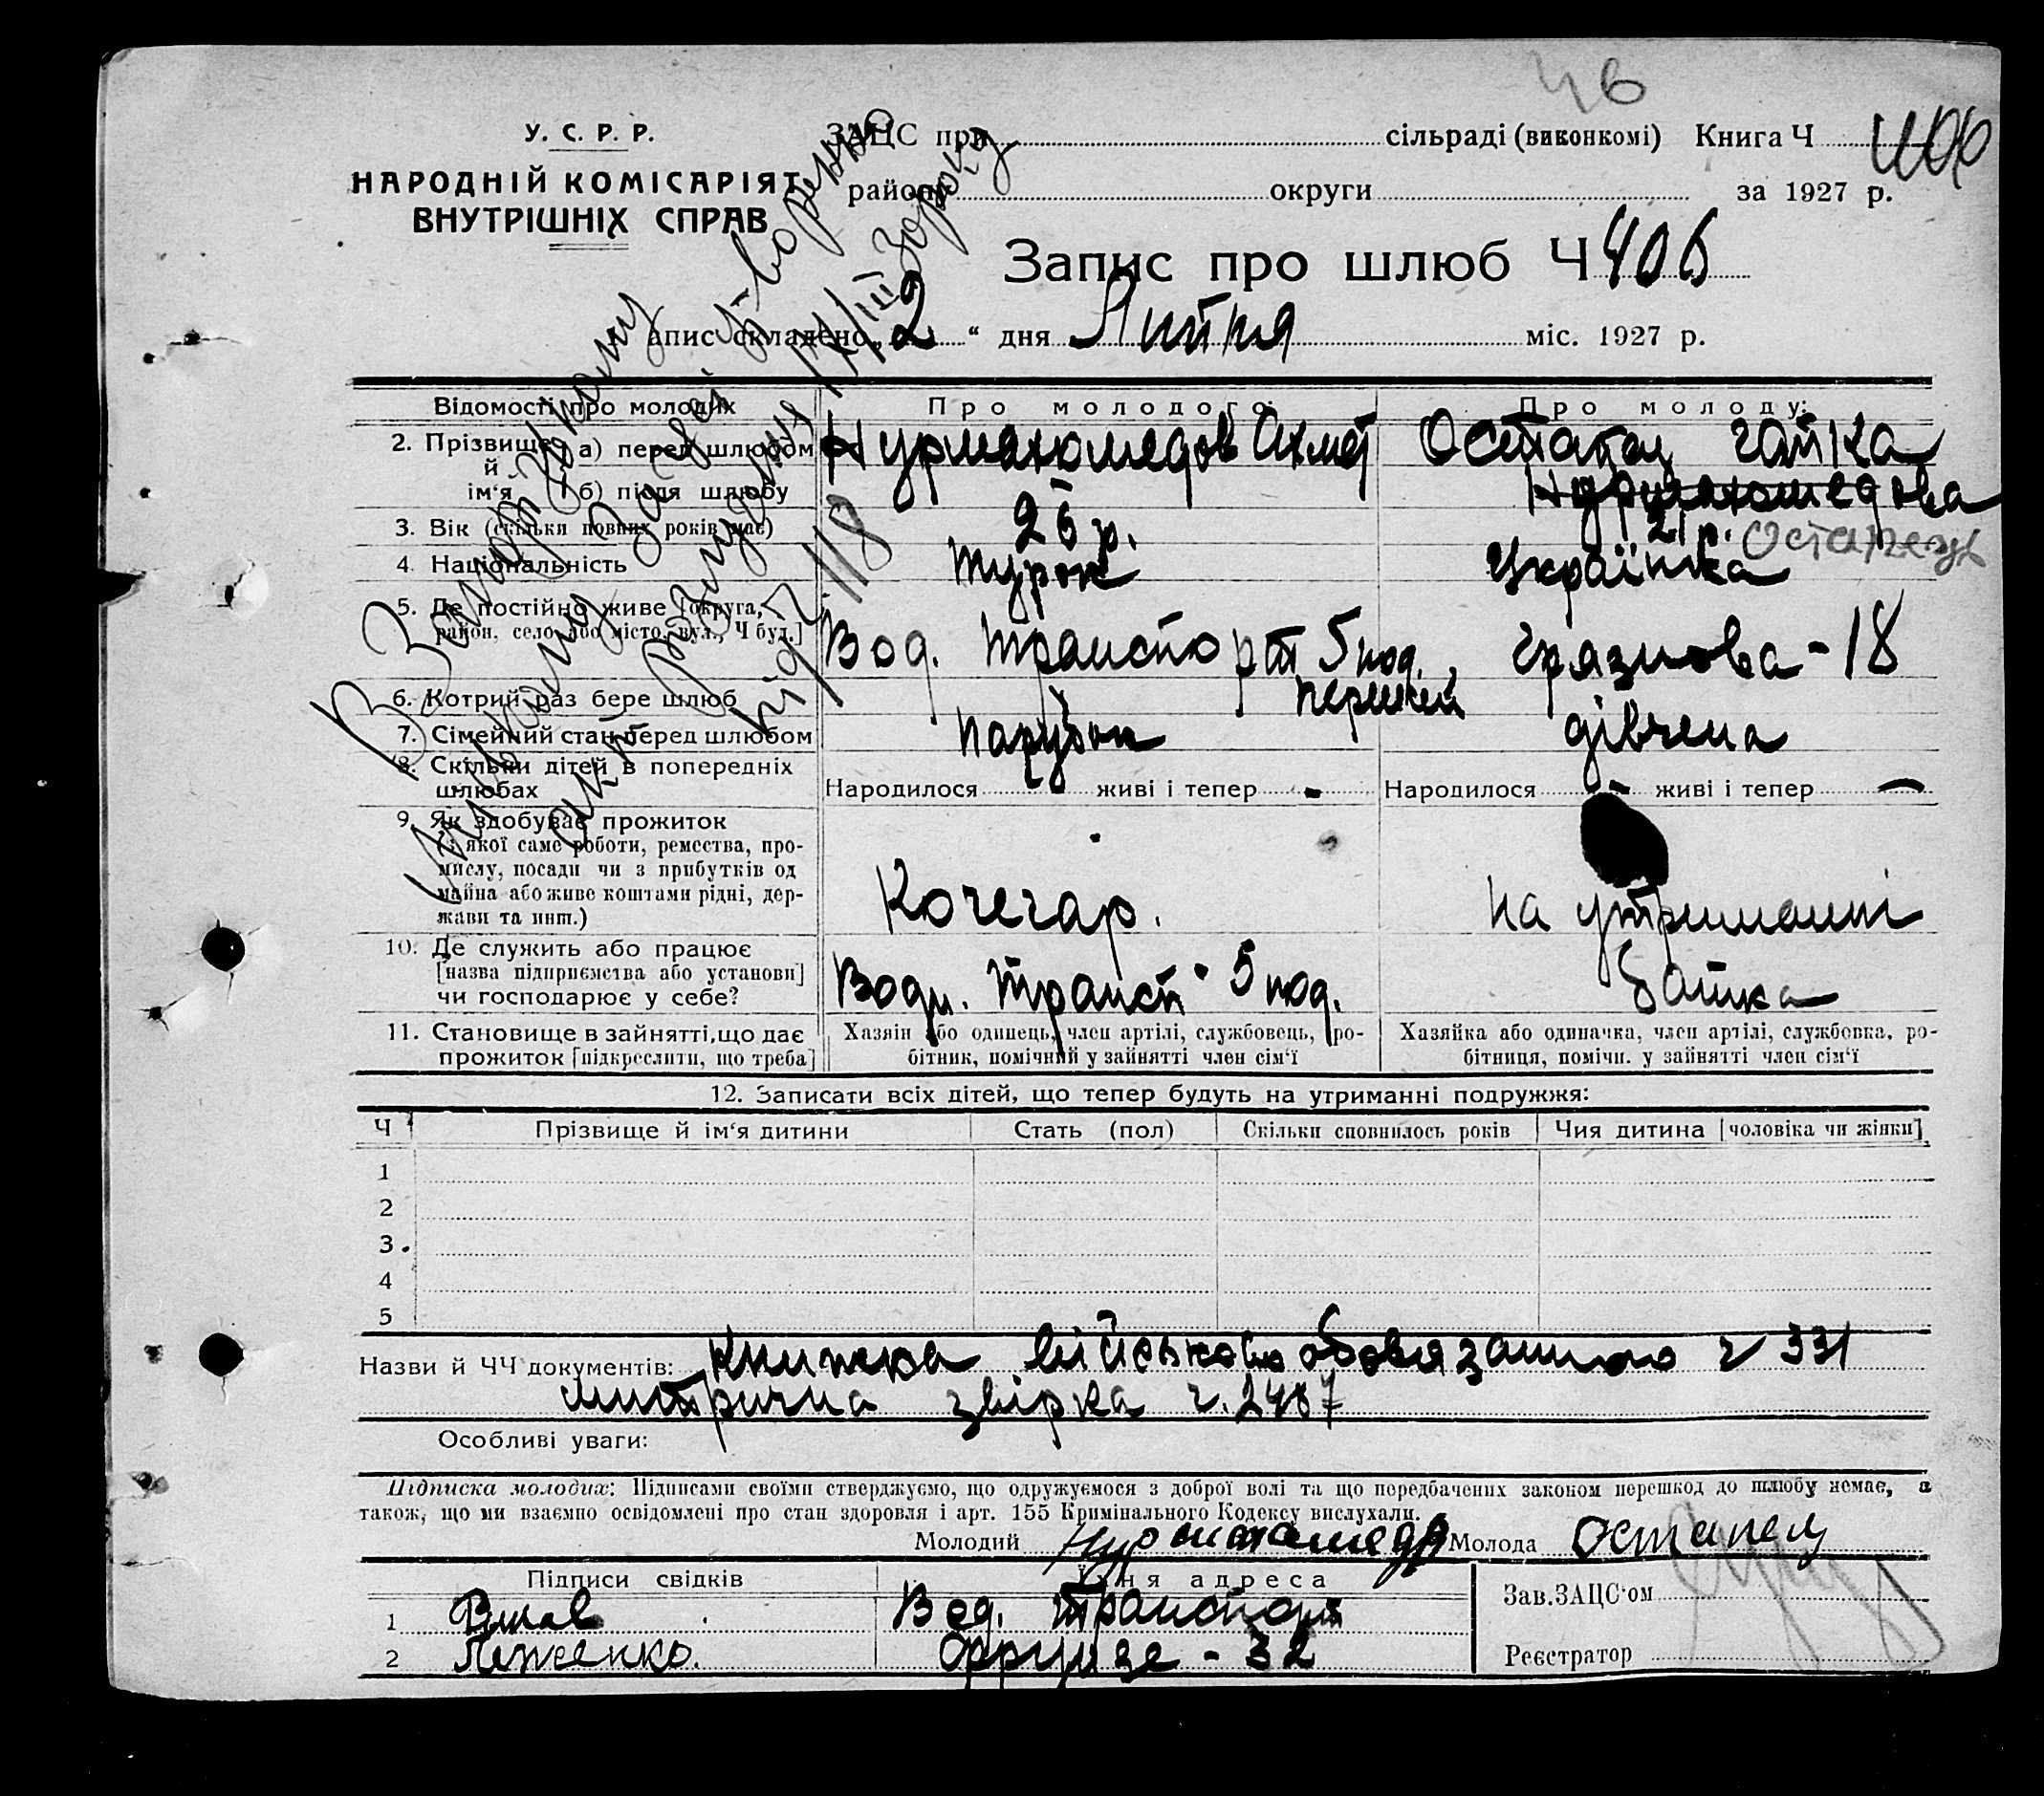 У. С. Р. Р.
НАРОДНІЙ КОМІСАРІЯТ
ВНУТРІШНІХ СПРАВ
ЗАЦС при сільраді (виконкомі) Книга Ч
району округи за 1927 р.
Запис про шлюб Ч 406
апис складено „ 2 “ дня Липня міс. 1927 р.
Відомості про молодих Про молодого: Про молоду:
2. Прізвище й ім‘я а) перед шлюбом Нурмахомедов Ахмет Остапец Галька
б) після шлюбу Нурмахомедова Остапець
3. Вік (скільки повних років має) 26 р. 21 р.
4. Національність турок Українка
5. Де постійно живе [округа,
район, село або місто, вул., Ч буд.] Вод. транспорт 5 под., Грязнова-18
6. Котрий раз бере шлюб перший
7. Сімейний стан перед шлюбом парубок дівчена
8. Скільки дітей в попередніх
шлюбах Народилося - живі і тепер - Народилося - живі і тепер -
9. Як здобуває прожиток
(з якої саме роботи, ремества, про-
мислу, посади чи з прибутків од
майна або живе коштами рідні, дер-
жави та инш.) Кочегар. на утриманні
10. Де служить або працює
[назва підприємства або установи]
чи господарює у себе? Водн. трансп. 5 под. батька
11. Становище в зайнятті, що дає
прожиток [підкреслити, що треба]
Хазяін або одинець, член артілі, службовець, ро-
бітник, помічний у зайнятті член сім‘ї
Хазяйка або одиначка, член артілі, службовка, ро-
бітниця, помічн. у зайнятті член сім‘ї
12. Записати всіх дітей, що тепер будуть на утриманні подружжя:
Ч Прізвище й ім‘я дитини Стать (пол) Скільки сповнилось років Чия дитина [чоловіка чи жінки]
1
2
3
4
5
Назви й ЧЧ документів: книжка військовообовязаного ч 331
митрична звірка ч. 2487
Особливі уваги:
Підписка молодих: Підписами своїми стверджуємо, що одружуємося з доброї волі та що передбачених законом перешкод до шлюбу немає, а
також, що ми взаємно освідомлені про стан здоровля і арт. 155 Кримінального Кодексу вислухали.
Молодий Молода Остапец
Підписи свідків Їхня адреса Зав. ЗАЦС‘ом
1 Вод. транспорт
2 Леженко. Фрунзе - 32 Реєстратор